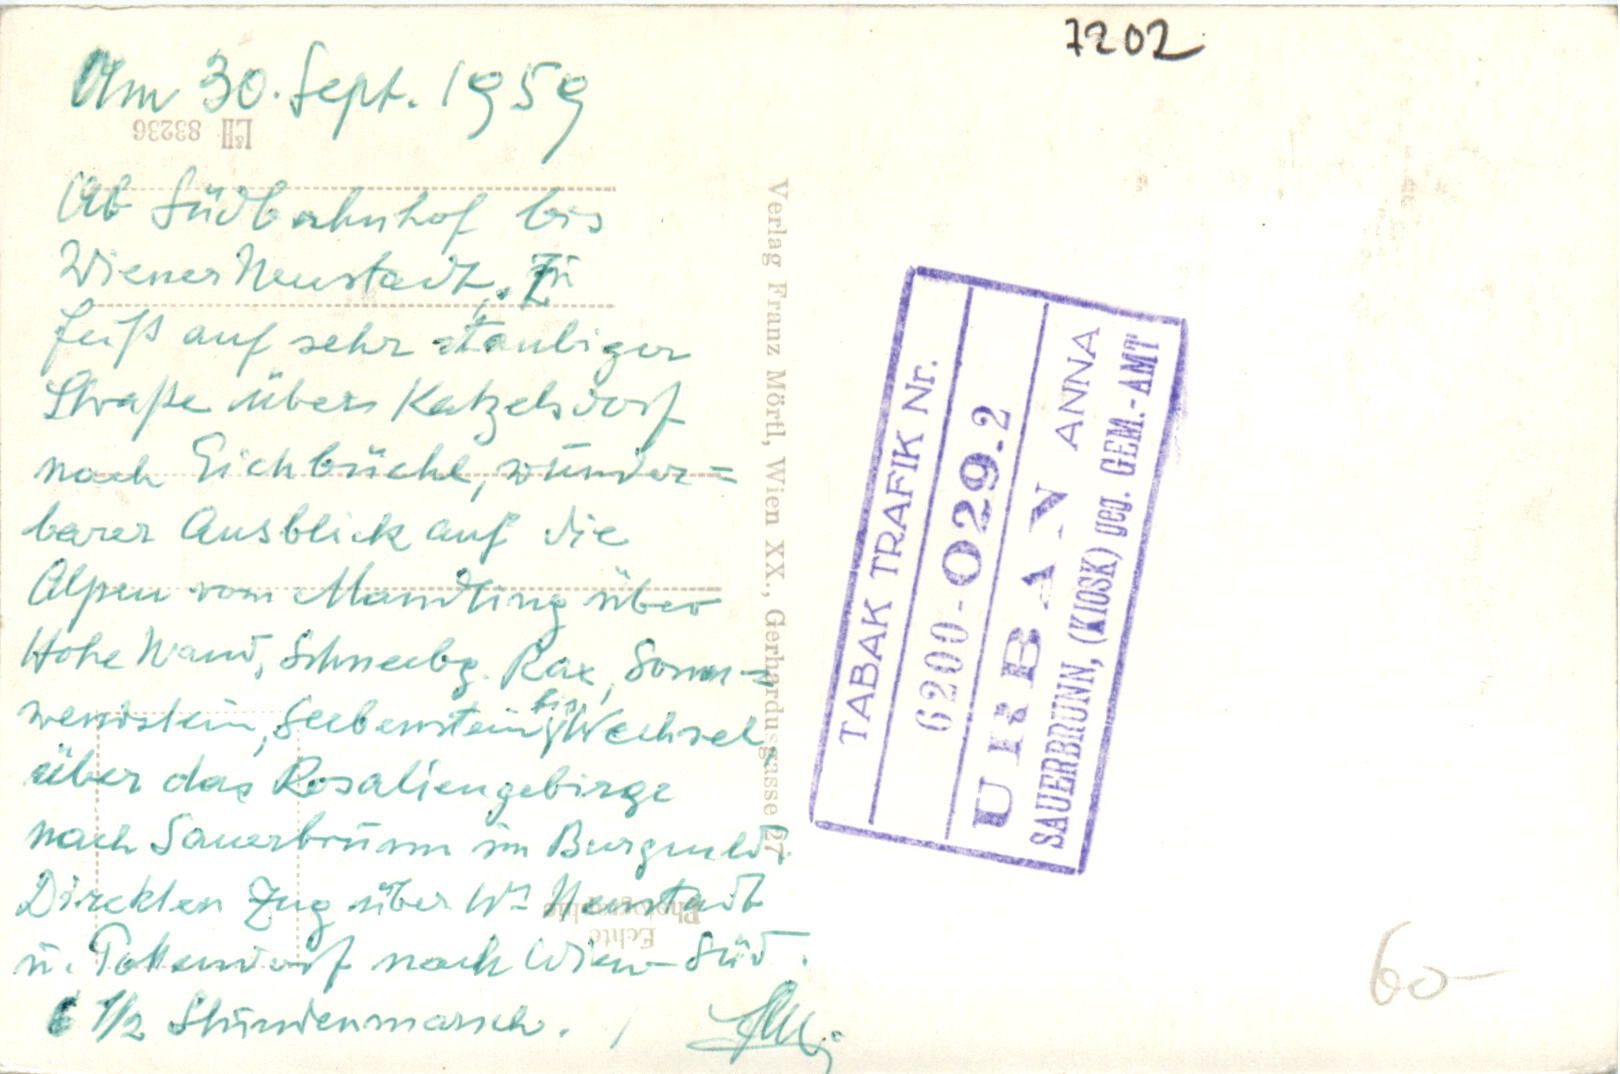 7202
Am 30. Sept. 1959
L&H 83236
Ab Südbahnhof bis
Wiener Neustadt. Zu
Fuß auf sehr staubiger
Straße über Katzelsdorf
nach Eichbüchl, wunder=
barer Ausblick auf die
Alpen vom Mandling über
Hohe Wand, Schneebg. Rax, Sonn-
wendstein, Seebenstein bis Wechsel,
über das Rosaliengebirge
nach Sauerbrunn im Burgenld.
Direkten Zug über Wr Neustadt
u. Pottendorf nach Wien-Süd.
6 1/2 Stundenmarsch.
Verlag Franz Mörtl, Wien XX., Gerhardusgasse 27
Echte
Photographie
TABAK TRAFIK Nr.
6200-029.2
URBAN ANNA
SAUERBRUNN, (KIOSK) geg. GEM.-AMT
60-